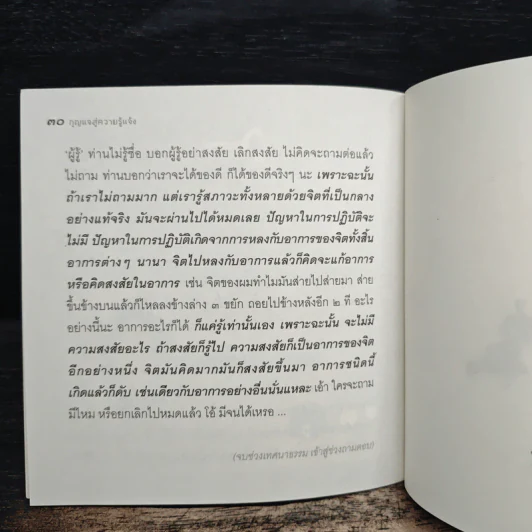 ๓๐ กุญแจสู่ความรู้แจ้ง
'ผู้รู้' ท่านไม่รู้ชื่อ บอกผู้รู้อย่าสงสัย เลิกสงสัย ไม่คิดจะถามต่อแล้ว
ไม่ถาม ท่านบอกว่าเราจะได้ของดี ก็ได้ของดีจริงๆ นะ เพราะฉะนั้น
ถ้าเราไม่ถามมาก แต่เรารู้สภาวะทั้งหลายด้วยจิตที่เป็นกลาง
อย่างแท้จริง มันจะผ่านไปได้หมดเลย ปัญหาในการปฏิบัติจะ
ไม่มี ปัญหาในการปฏิบัติเกิดจากการหลงกับอาการของจิตทั้งสิ้น
อาการต่างๆ นานา จิตไปหลงกับอาการแล้วก็คิดจะแก้อาการ
หรือคิดสงสัยในอาการ เช่น จิตของผมทำไมมันส่ายไปส่ายมา ส่าย
ขึ้นข้างบนแล้วก็ไหลลงข้างล่าง ๓ ขยัก ถอยไปข้างหลังอีก ๒ ที อะไร
อย่างนี้นะ อาการอะไรก็ได้ ก็แค่รู้เท่านั้นเอง เพราะฉะนั้น จะไม่มี
ความสงสัยอะไร ถ้าสงสัยก็รู้ไป ความสงสัยก็เป็นอาการของจิต
อีกอย่างหนึ่ง จิตมันคิดมากมันก็สงสัยขึ้นมา อาการชนิดนี้
เกิดแล้วก็ดับ เช่นเดียวกับอาการอย่างอื่นนั่นแหละ เอ้า ใครจะถาม
มีไหม หรือยกเลิกไปหมดแล้ว โอ้ มีจนได้เหรอ ...
(จบช่วงเทศนาธรรม เข้าสู่ช่วงถามตอบ)